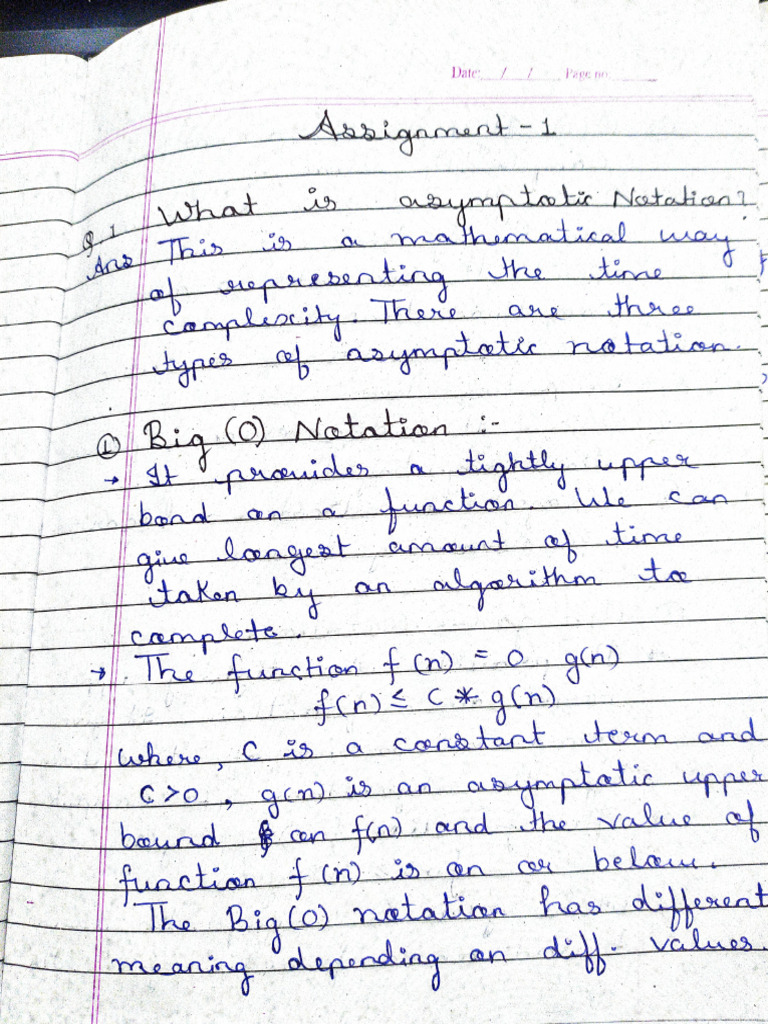 Date: / / Page no.
Assignment - 1
Q.1 What is asymptotic Notation?
Ans This is a mathematical way
of representing the time
complexity. There are three
types of asymptotic notation.
① Big (O) Notation :-
→ It provides a tightly upper
bond on a function. We can
give longest amount of time
taken by an algorithm to
complete.
→ The function f (n) = O g(n)
f(n) ≤ C * g(n)
where, C is a constant term and
C > 0 , g(n) is an asymptotic upper
bound on f(n) and the value of
function f (n) is on or below.
The Big (O) notation has different
meaning depending on diff. values.